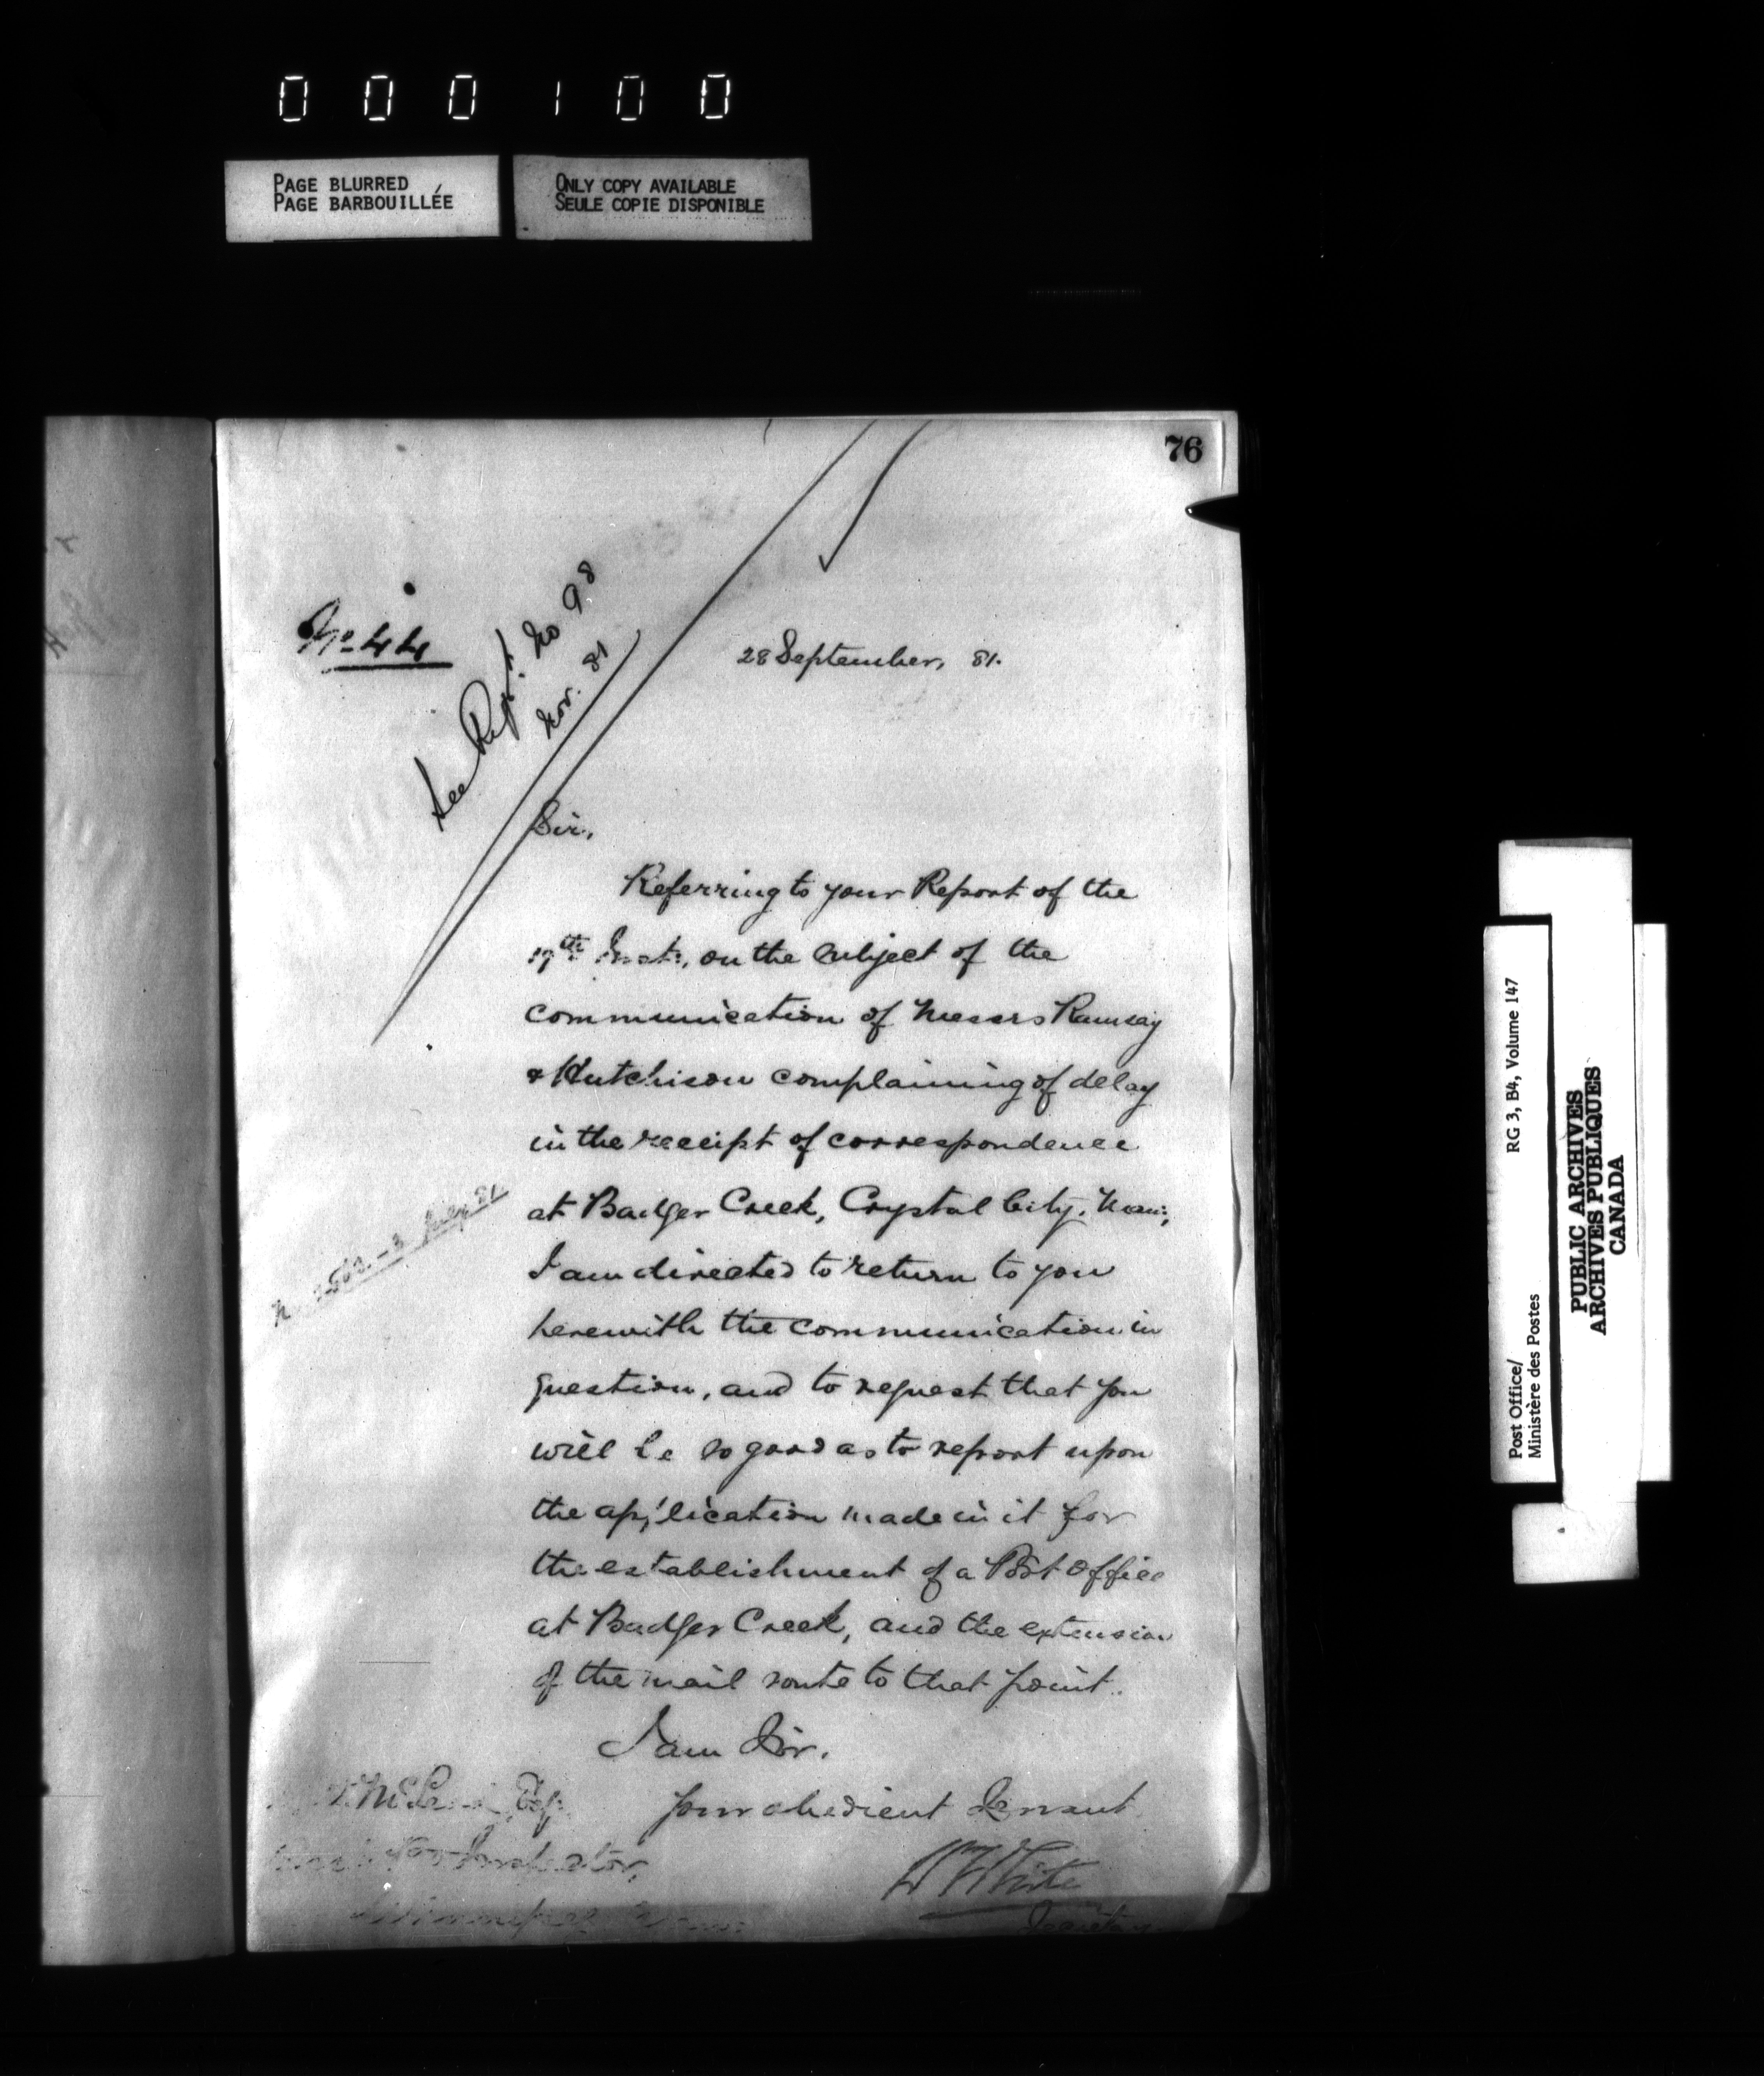 000100
PAGE BLURRED
PAGE BARBOUILLÉE
ONLY COPY AVAILABLE
SEULE COPIE DISPONIBLE
76
No 44
See Rept. No 98
Nov. 81
28 September, 81.
Sir,
Referring to your Report of the
19th Inst., on the subject of the
communication of Messrs Ramsay
& Hutchison complaining of delay
in the receipt of correspondence
at Badger Creek, Crystal City, Man;
I am directed to return to you
herewith the communication in
question, and to request that you
will be so good as to report upon
the application made in it for
the establishment of a Post Office
at Badger Creek, and the extension
of the mail route to that point.
I am Sir,
Your obedient Servant
Esq
Inspector,
Winnipeg
W White
Secretary
Post Office/
Ministère des Postes
RG 3, B4, Volume 147
PUBLIC ARCHIVES
ARCHIVES PUBLIQUES
CANADA